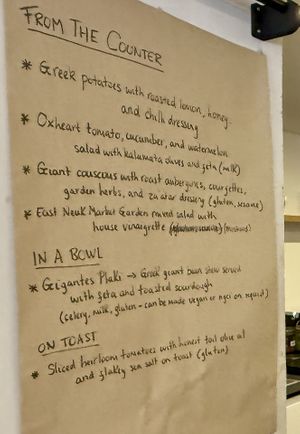 FROM THE COUNTER
* Greek potatoes with roasted lemon, honey
and chilli dressing
* Oxheart tomato, cucumber, and watermelon
salad with kalamata olives and feta (milk)
* Giant couscous with roast aubergines, courgettes,
garden herbs, and za'atar dressery (gluten, sesame)
* East Neuk Market Garden mixed salad with
house vinaigrette (mustard)
IN A BOWL
* Gigantes Plaki → Greek giant bean stew served
with feta and toasted sourdough
(celery, milk, gluten - can be made vegan or ngci on request)
ON TOAST
* Sliced heirloom tomatoes with honest toil olive oil
and flakey sea salt on toast (gluten)